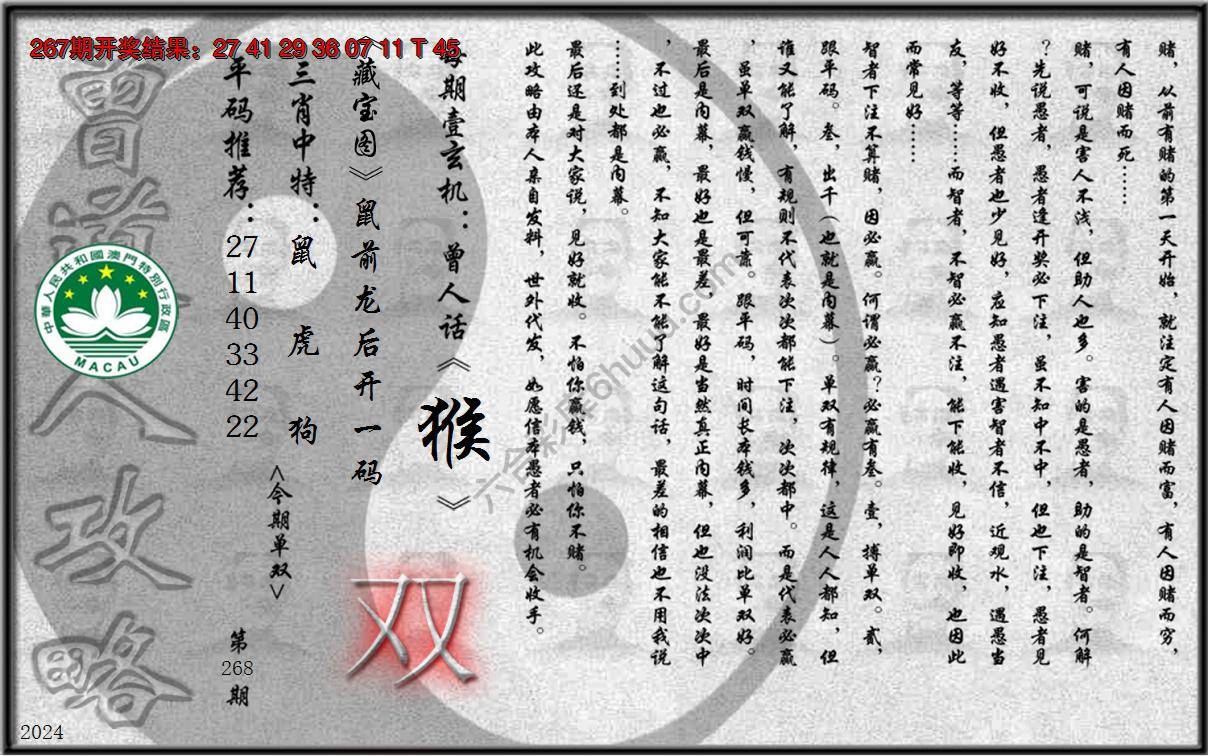 267期开奖结果：27 41 29 36 07 11 T 45
赌，从前有赌的第一天开始，就注定有人因赌而富，有人因赌而穷，
有人因赌而死……
赌，可说是害人不浅，但助人也多。害的是愚者，助的是智者。何解
？先说愚者，愚者逢开奖必下注，虽不知中不中，但也下注，愚者见
好不收，但愚者也少见好，应知愚者遇害智者不信，近观水，遇愚当
友，等等……而智者，不智必赢不注，能下能收，见好即收，也因此
而常见好……
智者下注不算赌，因必赢。何谓必赢？必赢有叁。壹，搏单双。贰，
跟平码。叁，出千（也就是内幕）。单双有规律，这是人人都知，但
谁又能了解，有规则不代表次次都能下注，次次都中。而是代表必赢
，虽单双赢钱慢，但可靠。跟平码，时间长本钱多，利润比单双好。
最后是内幕，最好也是最差，最好是当然真正内幕，但也没法次次中
，不过也必赢，不知大家能不能了解这句话，最差的相信也不用我说
……到处都是内幕。
最后还是对大家说，见好就收。不怕你赢钱，只怕你不赌。
此攻略由本人亲自发料，世外代发，如愿信本愚者必有机会收手。
每期壹玄机：曾人话《猴》
《藏宝图》鼠前龙后开一码
双
三肖中特：鼠 虎 狗
<今期单双>
平码推荐：
27
11
40
33
42
22
第
268
期
曾道人攻略
中華人民共和國澳門特別行政區
MACAU
六合彩库6huuu.com
2024